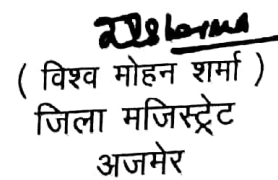 ( विश्व मोहन शर्मा )
जिला मजिस्ट्रेट
अजमेर